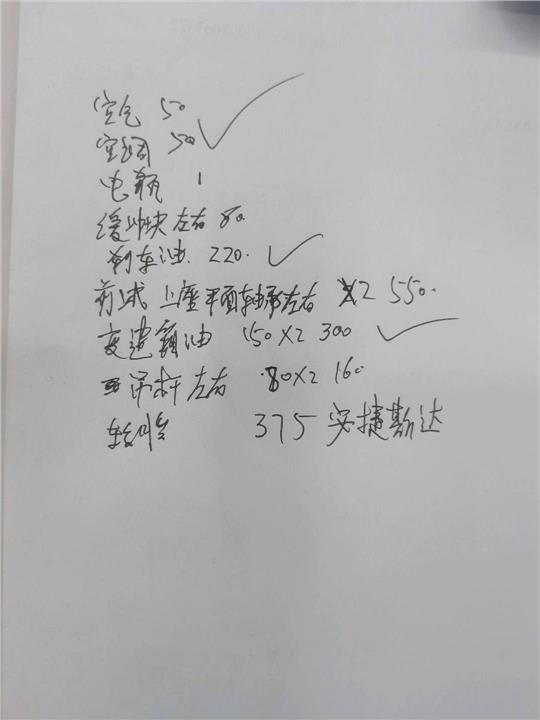 空气 50
空调 50
电瓶 1
缓冲块左右 80
刹车油. 220.
上座平面轴承左右 X2 550.
变速箱油 150X2 300
吊杆左右 80X2 160
375 安捷斯达